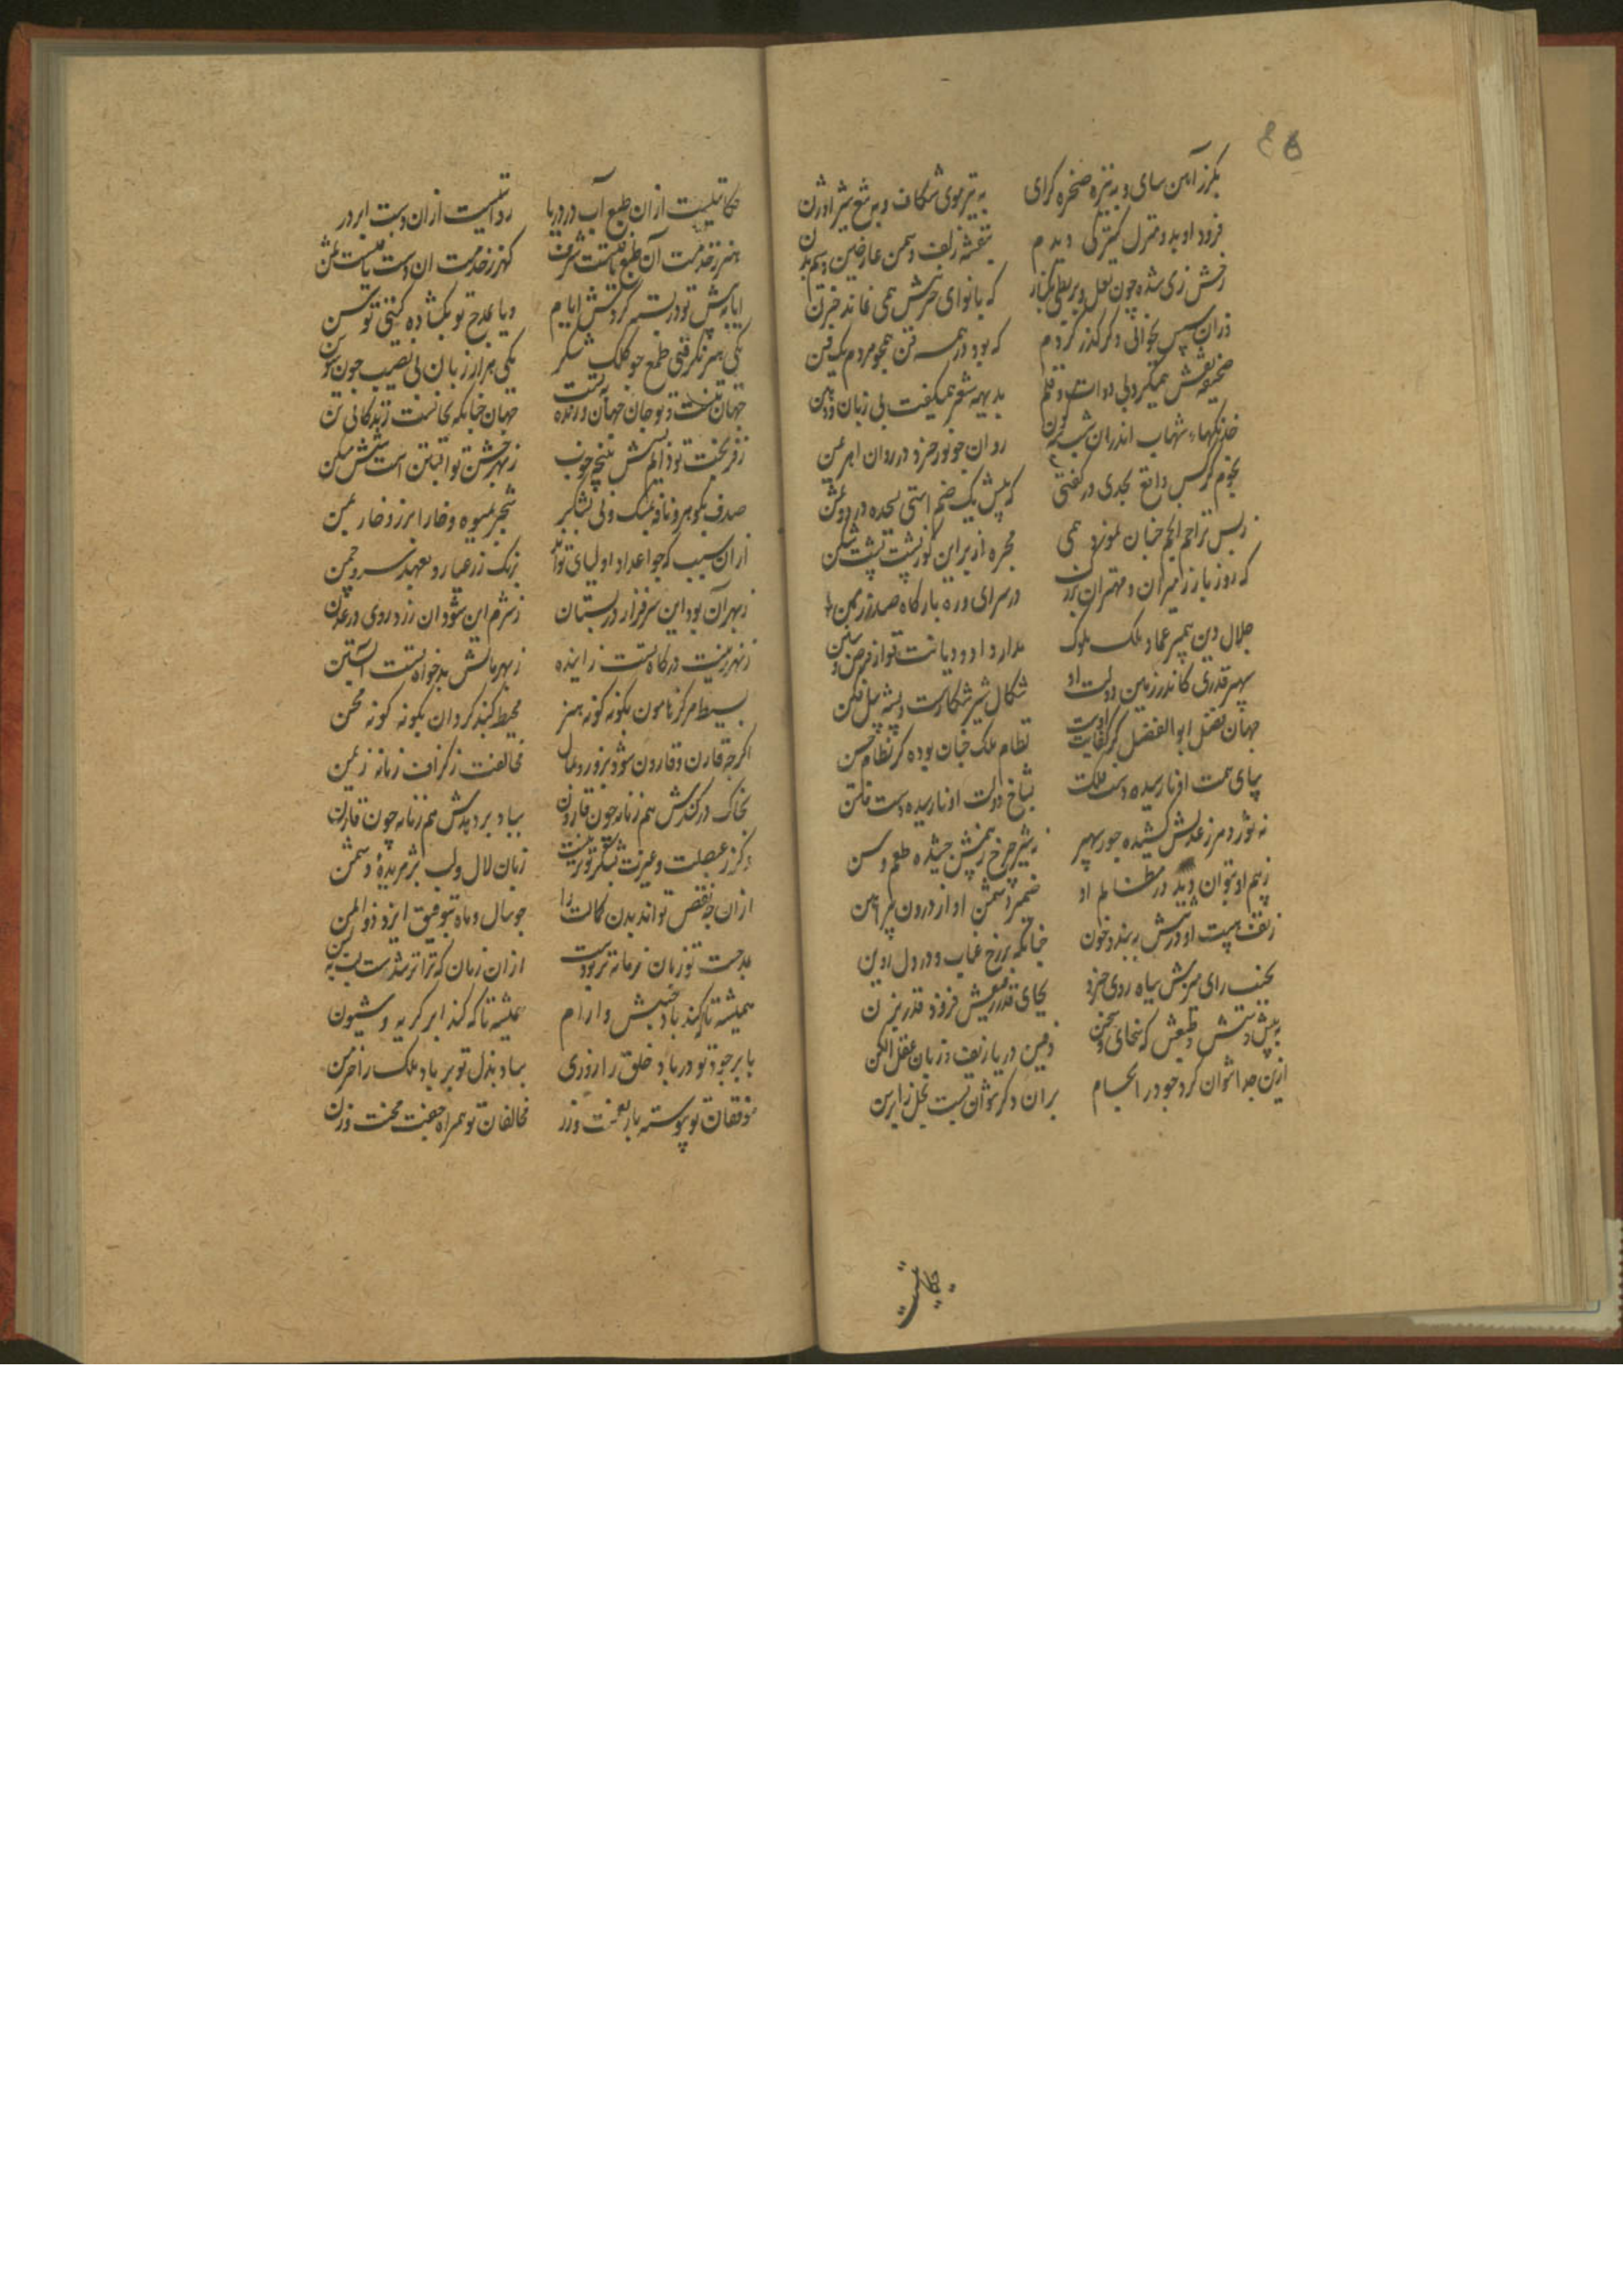 بکرز آهن سای و به نیزه صخره کرای به تیر موی شکاف و به تیغ شیر اوژن
فرود او بدو منزل کنیزکی دیدم بنفشه زلف و سمن عارضین و سیم بدن
رخش ز می شده چون لعل و بربطی بکنار که با نوای حزینش همی نماند حزن
در آن سپس بحوالی دکر کذر کردم که بود در همه فن همچو مردم یک فن
صحیفه نقش همیکرد بی دوات و قلم بدیهه شعر همیکفت بی زبان و دهن
خدنکهاء شهاب اندران شب شبه کون روان چو نور خرد در روان اهرمن
نجوم کرکس واقع بجدی در کفتی که پیش یک صنم استی بسجده در دو شمن
ز بس تراحم انجم چنان نمود همی مجره از بر این کوژپشت پشت شکن
که روز بار ز میران و مهتران بزرک در سرای و ره بارکاه صدر زمن
جلال دین پیمبر عماد ملک ملوک مدار داد و دیانت قوام فرض و سنن
سپهر قدری کاندر زمین دولت او شکال شیر شکارست و پشه پیل فکن
جهان فضل ابوالفضل کز کفایت اوست نظام ملک چنان بوده کز نظام حسن
بپای همت او نارسیده دست ملک بشاخ دولت او نارسیده دست فتن
نه نور دمرز عدلش کشیده جور سپهر نه شیر چرخ ز سهمش چشیده طعم وسن
ز سهم او بتوان دید در مظالم او ضمیر دشمن او از درون پیراهن
ز تف هیبت او در تنش ببندد خون چنانکه برزخ عناب و در دل روین
بجنب رای منیرش سیاه روی خرد بجای قدر رفیعش فرود قدر پرن
به پیش دستش و طبعش که سخای و سخن زمین دریا زیف و زبان عقل الکن
ازین جدا نتوان کرد جود در اجسام بر آن دکر نتوان بست بخل را برسن
حکایتیست
حکایتیست از آن طبع آب در دریا روایتیست از آن دست ابر در
هنر ز خدمت آن طبع یافتست شرف کهر ز خدمت آن دست یافتست ثمن
ایا به پیش تو در بسته کردش ایام و یا بمدح تو بکشاده کیتی توسن
یکی هنر نکرفتی طمع چو کلک شکر یکی هزار زبان بی نصیب چون سوسن
جهان تنست و تو جان جهان و زنده بتست جهان چنانکه بجانست زندکانی تن
ز فر بخت تو دایم بسش نتیجه خوب ز بهر جشن تو آبستن است شش مسکن
صدف بلولو و نافه بمشک و نی بشکر شجر بمیوه و خارا بزر و خار بمن
از آن سبب که چو اعداد اولیای تواند برنک زر عیار و بعهد سرو چمن
ز بهر آن بود این سرفراز در بستان ز شرم این شود آن زرد روی در معدن
ز بهر زینت درکاه تست زاینده ز بهر مالش بدخواه تست آبستن
بسیط مرکز هامون بکونه کونه هنر محیط کنبد کردان بکونه کونه محن
اکرچه قارن و قارون شود بزور و بمال مخالفت ز کزاف زمانه ز من
بخاک درکندش هم زمانه چون قارون بباد بردهدش هم زمانه چون قارن
و کر ز عصلت و عیرت بشکر تو نیست زبان لال و لب پژمریدهٔ دشمن
از آن چه نقص تواند بدن کمالت را چو سال و ماه بتوفیق ایزد ذوالمن
مدحت تو زبان زمانه تر بودست از آن زمان که ترا تر شدست لب بلبن
همیشه تا که کند باد جنبش و ارام همیشه تا که کند ابر کریه و شیون
با بر جود تو در باد خلق را روزی بباد بذل تو بر باد ملک را خرمن
موفقان تو پیوسته یار نعمت و زر مخالفان تو همراه جفت محنت و زن